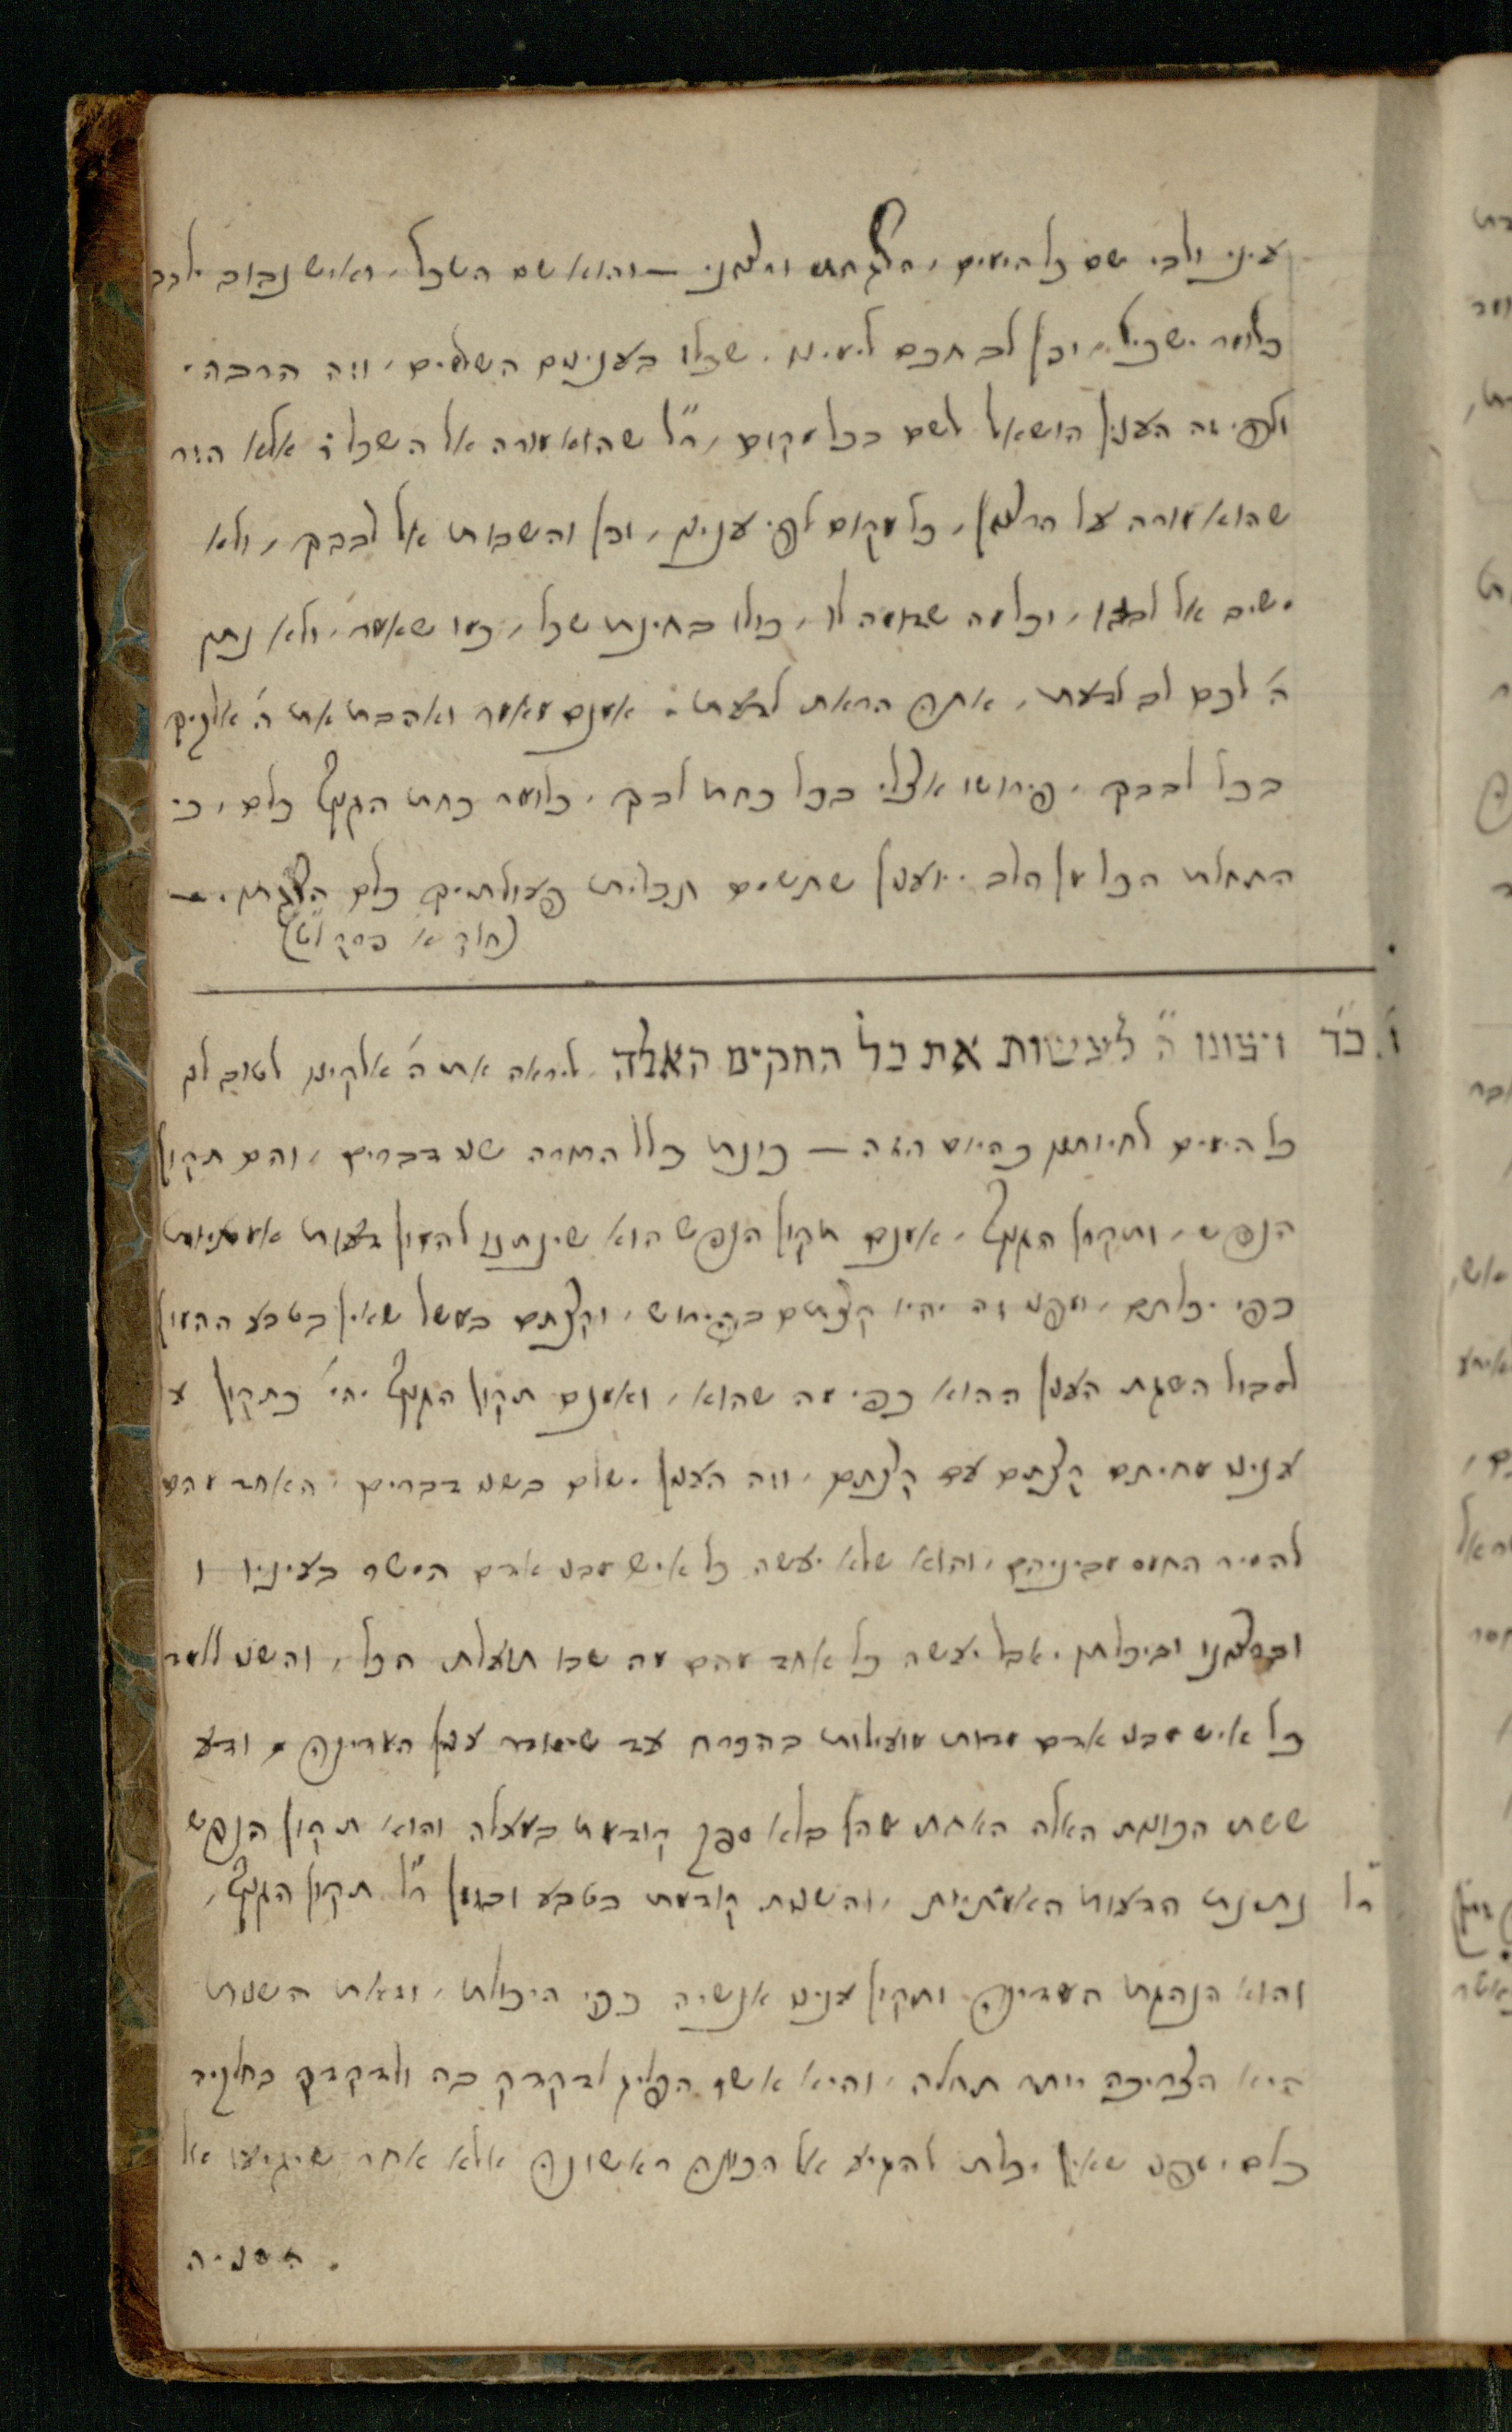 עיני ולבי שם כל הימים, השגחתי ורצוני — והוא שם השכל, ואיש נבוב ילבב
כלומר ישכיל, וכן לב חכם לימינו, שכלו בענינים השלמים, וזה הרבה.
ולפי זה הענין הושאל לשם בכל מקום, ר"ל שהוא מורה אל השכל, אלא היה
שהוא מורה על הרצון, כל מקום לפי ענינו, וכן והשבות אל לבבך, ולא
ישיב אל לבו, וכל מה שדומה לו, כולו בחינת שכל, כמו שאמר, ולא נתן
ה' לכם לב לדעת, אתה הראת לדעת. אמנם מאמר ואהבת את ה' אלקיך
בכל לבבך, פירושו אצלי בכל כחות לבך, כלומר כחות הגוף כלם, כי
התחלת הכל מן הלב. וענין שתשים תכלית פעולותיך כלם השגתו. —
(חלק א' פרק ל"ט)
ו' כ"ד ויצונו ה' לעשות את כל החקים האלה ליראה את ה' אלקינו לטוב לנו
כל הימים לחיותנו כהיום הזה — כונת כלל התורה שני דברים, והם תקון
הנפש, ותקון הגוף, אמנם תקון הנפש הוא שינתנו להמון דעות אמתיות
כפי יכלתם, ומפני זה יהיו קצתם בפירוש, וקצתם במשל שאין בטבע ההמון
לסבול השגת הענין ההוא כפי מה שהוא, ואמנם תקון הגוף יהי' כתקון ע
עניני מחיתם קצתם עם קצתם, וזה הענין ישלם בשני דברים, האחד מהם
להסיר החמס מביניהם, והוא שלא יעשה כל איש מבני אדם הישר בעיניו ו
וברצונו וביכלתו, אבל יעשה כל אחד מהם מה שבו תועלת הכל, והשני ללמד
כל איש מבני אדם מדות מועילות בהכרח עד שיסודר ענין המדינה, ודע
ששתי הכונות האלה האחת מהן בלא ספק קודמת במעלה והוא תקון הנפש
ר"ל נתינת הדעות האמתיות, והשנית קודמת בטבע ובזמן ר"ל תקון הגוף,
והוא הנהגת המדינה ותקון עניני אנשיה כפי היכולת, וזאת השנית
היא הצריכה יותר תחלה, והיא אשר הפליג לדקדק בה ולדקדק בחלקיה
כלם, מפני שאין יכלת להגיע אל הכונה הראשונה אלא אחר שיגיעו אל
השניה.